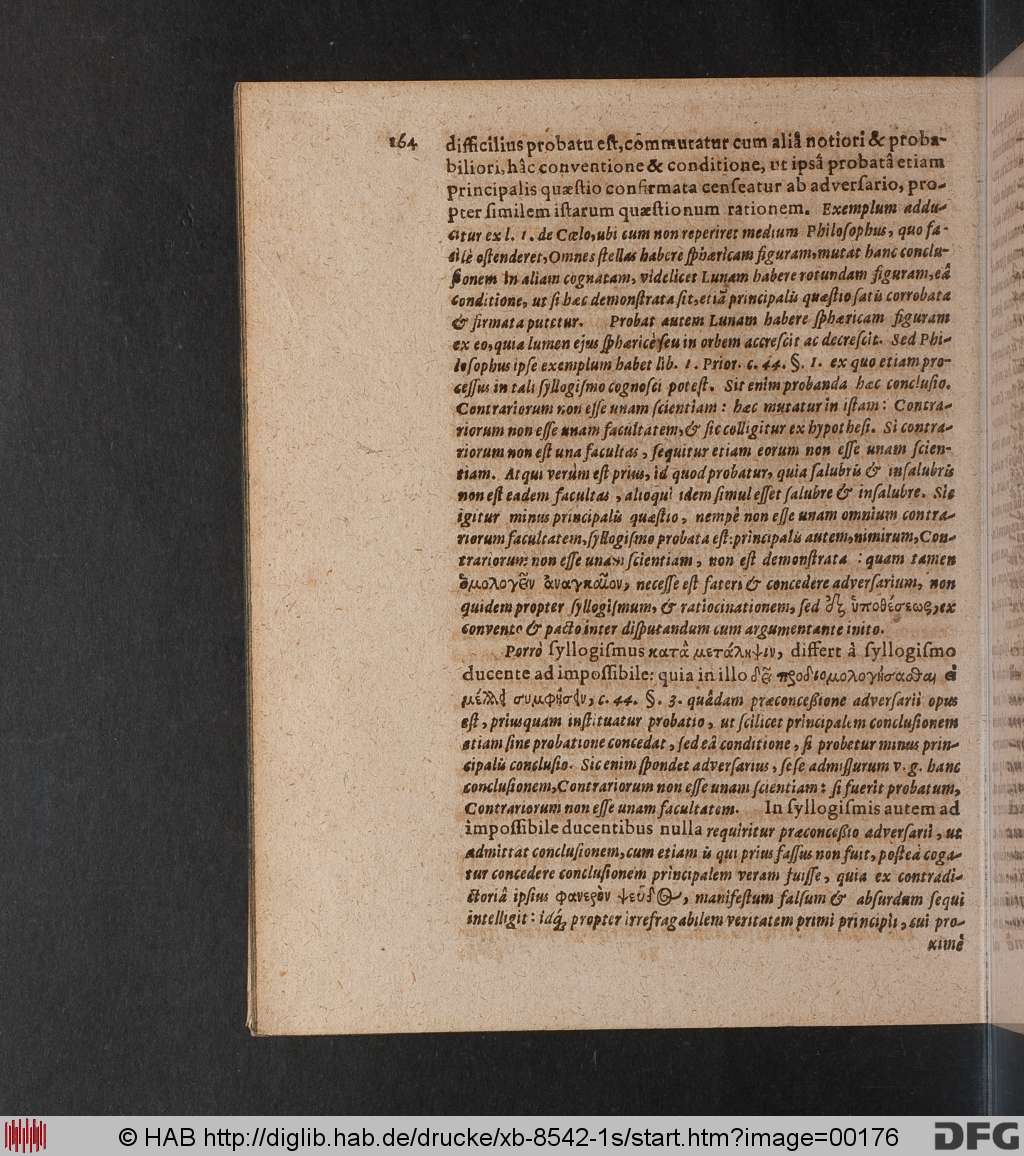 164 difficilius probatu est, commutatur cum aliâ notiori & proba-
biliori, hâc conventione & conditione, ut ipsâ probatâ etiam
principalis quæstio confirmata censeatur ab adversario, pro-
pter similem istarum quæstionum rationem. Exemplum addu-
citur ex l. 1. de Cœlo, ubi cum non reperiret medium Philosophus, quo fa-
cilè ostenderet, Omnes stellas habere sphæricam figuram, mutat hanc conclu-
sionem in aliam cognatam, videlicet Lunam habere rotundam figuram, eâ
conditione, ut si hæc demonstrata sit, etiã principalis quæstio satis corrobata
& firmata putetur. Probat autem Lunam habere sphæricam figuram
ex eo, quia lumen ejus sphæricè seu in orbem accrescit ac decrescit. Sed Phi-
losophus ipse exemplum habet lib. 1. Prior. c. 44. §. 1. ex quo etiam pro-
cessus in tali syllogismo cognosci potest. Sit enim probanda hæc conclusio.
Contrariorum non esse unam scientiam: hæc mutatur in istam: Contra-
riorum non esse unam facultatem, & sic colligitur ex hypothesi. Si contra-
riorum non est una facultas, sequitur etiam eorum non esse unam scien-
tiam. Atqui verùm est prius, id quod probatur, quia salubris & insalubris
non est eadem facultas, alioqui idem simul esset salubre & insalubre. Sic
igitur minus principalis quæstio, nempè non esse unam omnium contra-
riorum facultatem, syllogismo probata est: principalis autem, nimirum, Con-
trariorum non esse unam scientiam, non est demonstrata: quam tamen
ὁμολογεῖν ἀναγκαῖον, necesse est fateri & concedere adversarium, non
quidem propter syllogismum, & ratiocinationem, sed ἐξ ὑποθέσεως, ex
convento & pacto inter disputandum cum argumentante inito.
Porrò syllogismus κατὰ μετάληψιν, differt â syllogismo
ducente ad impossibile: quia in illo δεῖ προδιομολογήσασθαι εἰ
μέλλει συμφήσειν, c. 44. §. 3. quâdam præconcessione adversarii opus
est, priusquam instituatur probatio, ut scilicet principalem conclusionem
etiam sine probatione concedat, sed eâ conditione, si probetur minus prin-
cipalis conclusio. Sic enim spondet adversarius, sese admissurum v. g. hanc
conclusionem, Contrariorum non esse unam scientiam: si fuerit probatum,
Contrariorum non esse unam facultatem. In syllogismis autem ad
impossibile ducentibus nulla requiritur præconcessio adversarii, ut
admittat conclusionem, cum etiam is qui prius fassus non fuit, posteà coga-
tur concedere conclusionem principalem veram fuisse, quia ex contradi-
ctoriâ ipsius φανερὸν ψεῦδος, manifestum falsum & absurdum sequi
intelligit: idq́ue propter irrefragabilem veritatem primi principii, cui pro-
ximè
© HAB http://diglib.hab.de/drucke/xb-8542-1s/start.htm?image=00176
DFG